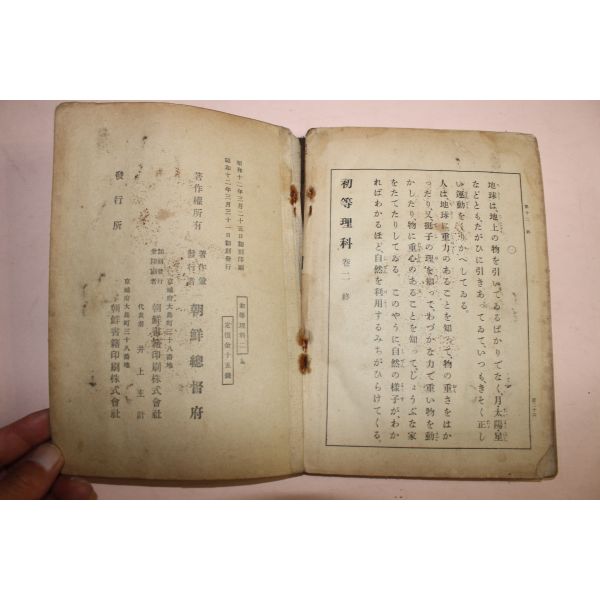 地球は地上の物を引いてゐるばかりでなく、月・太陽・星
などともたがひに引きあつてゐて、いつもきそく正し
い運動をくりかへしてゐる。
人は地球に重力のあることを知つて、物の重さをはか
つたり、又挺子の理を知つてわづかな力で重い物を動
かしたり、物に重心のあることを知つて、じょうぶな家
をたてたりしてゐる。このやうに、自然の樣子が、わか
ればわかるほど、自然を利用するみちがひらけてくる。
初等理科 卷二 終
昭和十二年三月二十五日翻刻印刷
昭和十二年三月三十一日翻刻發行
著作權所有
著作兼
發行者
朝鮮總督府
初等理科二
定價金十五錢
京城府大島町三十八番地
翻刻發行
兼印刷者
朝鮮書籍印刷株式會社
代表者 井上主計
京城府大島町三十八番地
發行所
朝鮮書籍印刷株式會社